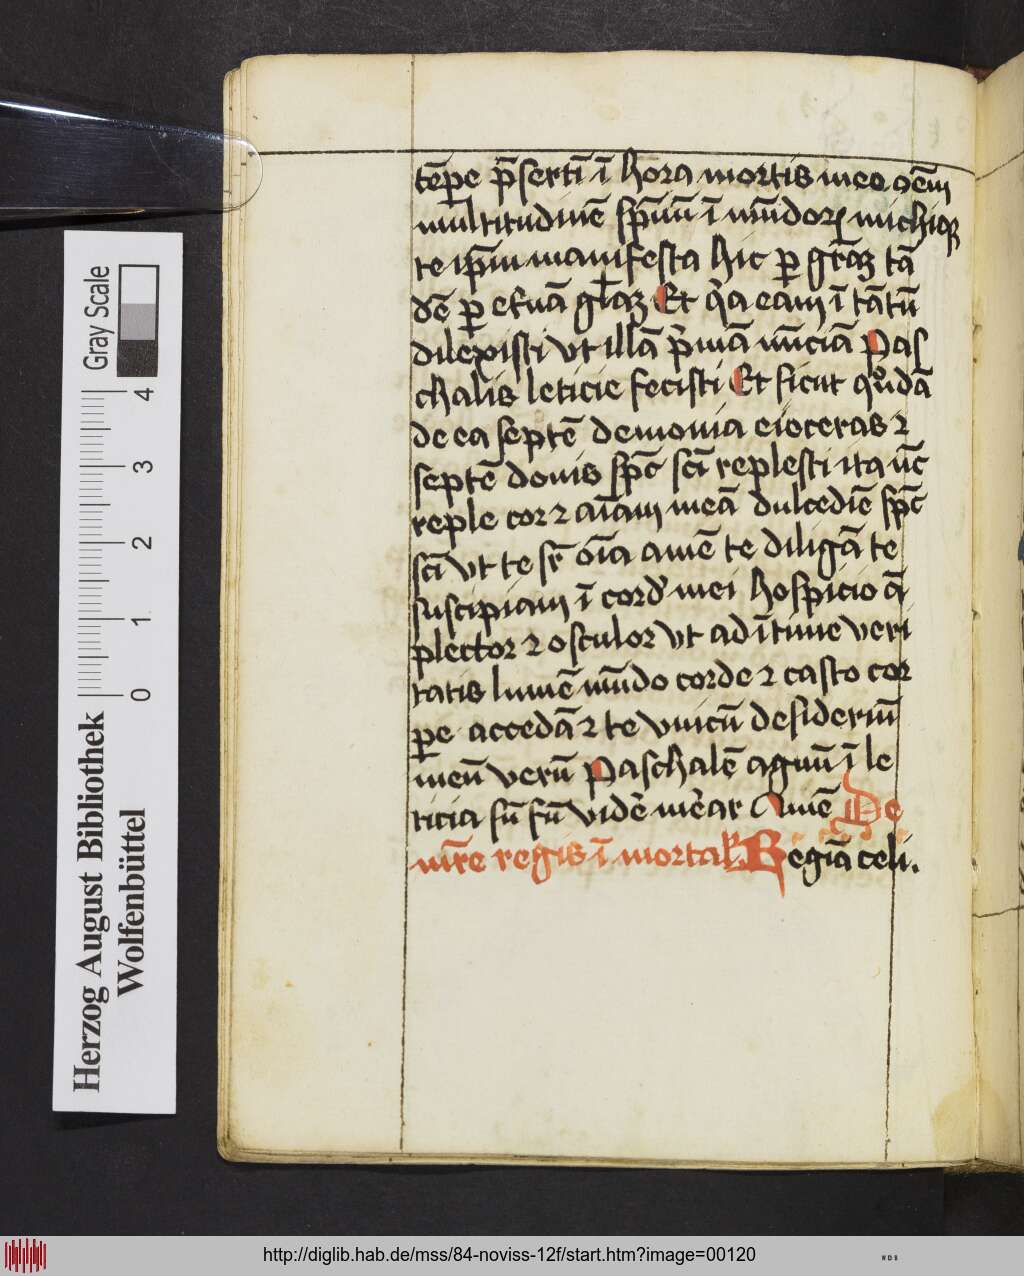 tēpe p̄sertī ī hora mortis mee oēm
multitudinē sp̄uū ī mūdoꝝ michiqꝫ
te ip̄m manifesta hic ꝑ gr̄aꝫ tā
dē ꝑ et̄nā gl̄aꝫ Et q̄a eam ī tātū
dilexisti vt illā p̄mā nūciā Pas
chalis leticie fecisti Et sicut quōdā
de ea septē demonia eieceras ⁊
septē donis sp̄c sc̄i replesti ita nc̄
reple cor ⁊ aīam meā dulcedīe sp̄c
sc̄i vt te sr̄ oīa amē te diligā te
suscipiam ī cord' mei hospicio ā
plector ⁊ osculor vt ad ītime veri
tatis lumē mūdo corde ⁊ casto cor
ꝑe accedā ⁊ te vnicū desideriū
meū verū Paschalē agnū ī le
ticia sū fū vidē mēar Amē De
mr̄e regis ī mortal' Regīa celi.
Gray Scale
4 3 2 1 0
Herzog August Bibliothek
Wolfenbüttel
http://diglib.hab.de/mss/84-noviss-12f/start.htm?image=00120